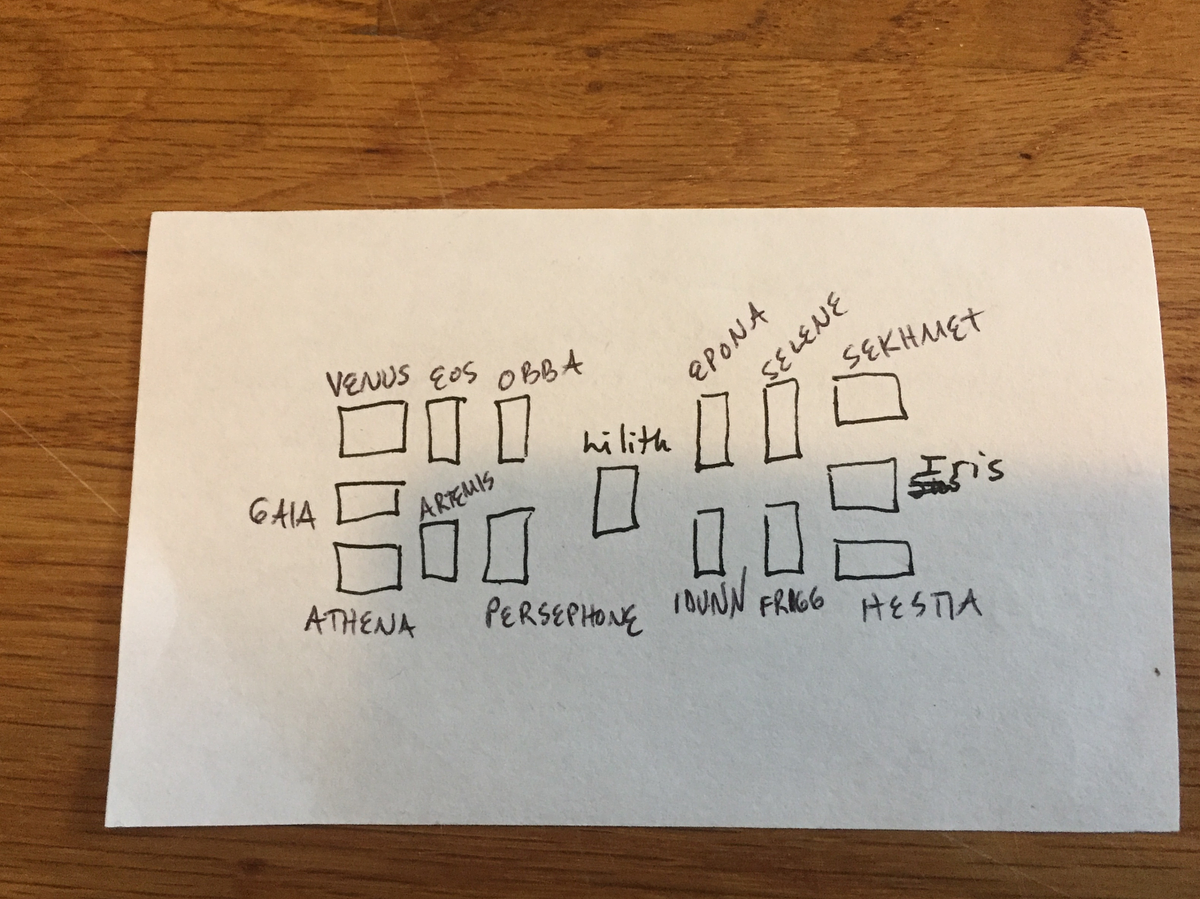 VENUS EOS OBBA EPONA SELENE SEKHMET
Lilith
GAIA ARTEMIS Iris
ATHENA PERSEPHONE IDUNN FRIGG HESTIA